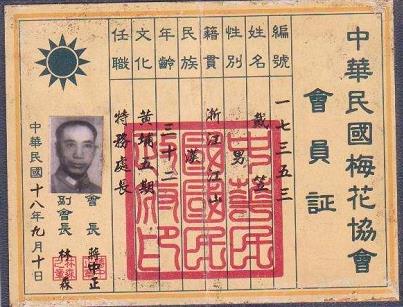 中華民國梅花協會
會員証
編號 一七三五三
姓名 戴笠
性別 男
籍貫 浙江江山
民族 漢
年齡 三十二
文化 黃埔五期
任職 特務處長
會長 蔣中正
副會長 林森
中華民國十八年九月十日